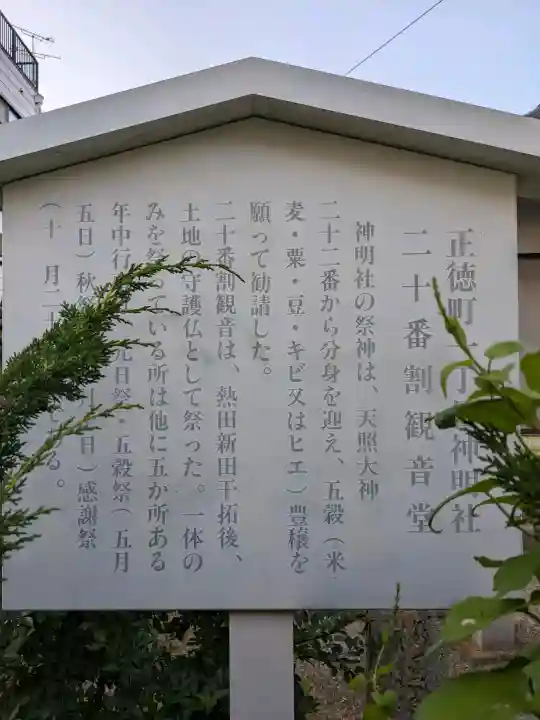 正徳町一丁 神明社
二十番割観音堂
神明社の祭神は、天照大神
二十二番から分身を迎え、五穀（米
麦・粟・豆・キビ又はヒエ）豊穣を
願って勧請した。
二十番割観音は、熱田新田干拓後、
土地の守護仏として祭った。一体の
みを祭っている所は他に五か所ある
年中行 元日祭・五穀祭（五月
五日）秋 日）感謝祭
（十 月二十 る。